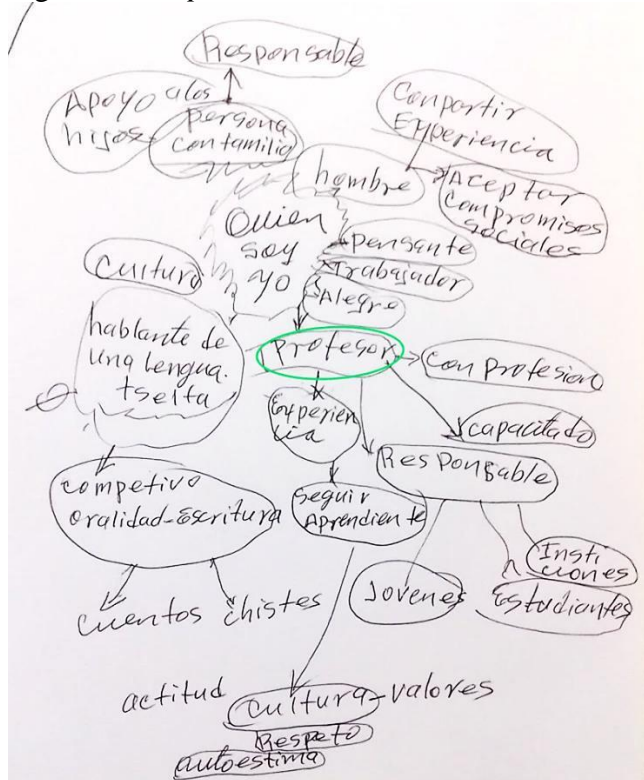 Responsable
Apoyo a los
hijos
persona
con familia
Conpartir
Experiencia
hombre
Aceptar
Compromisos
sociales
Quien
soy
yo
pensante
Trabajador
Alegre
Cultura
hablante de
una lengua.
tselta
Profesor
Con profesion
Experien
cia
capacitado
Responsable
competivo
oralidad-Escritura
Seguir
Aprendiente
Insti
ciones
Jovenes
Estudiantes
cuentos
chistes
actitud
cultura-valores
Respeto
autoestima